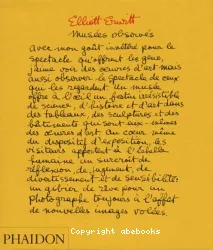 Elliott Erwitt
Musées observés
Avec mon goût invétéré pour le
spectacle qu'offrent les gens,
j'aime voir des œuvres d'art mais
aussi observer le spectacle de ceux
qui les regardent. Un musée
offre à l'œil un festin irrésistible
de science, d'histoire et d'art dans
des tableaux, des sculptures et des
bâtiments qui sont eux-mêmes
des œuvres d'art. Au cœur même
du dispositif d'exposition, les
visiteurs apportent à l'échelle
humaine un surcroît de
réflexion, de jugement, de
divertissement et de sensibilité:
un gibier de rêve pour un
photographe toujours à l'affût
de nouvelles images volées.
PHAIDON
Copyrighted material